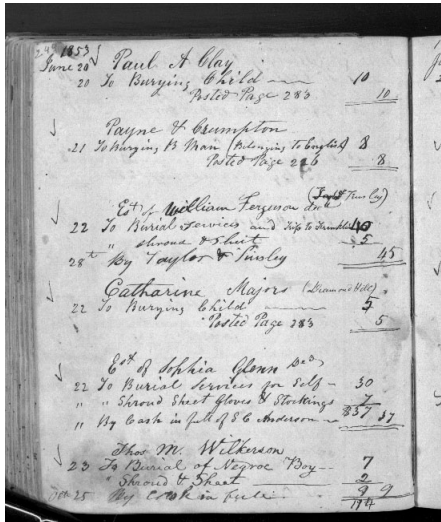 1853
June 20 Paul A Clay
20 To Burying Child 10
Posted Page 283 10
Payne & Crumpton
21 To Burying B Man (Belonging to English) 8
Posted Page 226 8
Est of William Ferguson
22 To Burial Services and Trip to Franklin 40
" Shroud & Sheet 5
28th By Taylor & Tinsley 45
Catharine Majors (Diamond Hill)
22 To Burying Child 5
Posted Page 283 5
Est of Sophia Glenn Decd
22 To Burial Services for Self 30
" " Shroud Sheet Gloves & Stockings 7
" By Cash in full of S C Anderson $37 37
Thos M. Wilkerson
23 To Burial of Negroe Boy 7
" Shroud & Sheet 2
Oct 25 By Cash in full 9 9
194